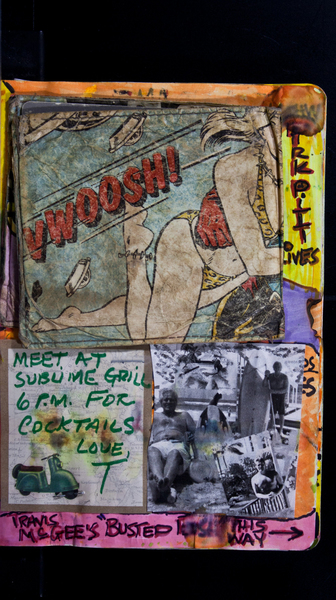 VWOOSH!
LIVES
MEET AT
SUBLIME GRILL
6 P.M. FOR
COCKTAILS
LOVE,
T
TRAVIS
McGEE'S "BUSTED
THIS
WAY →